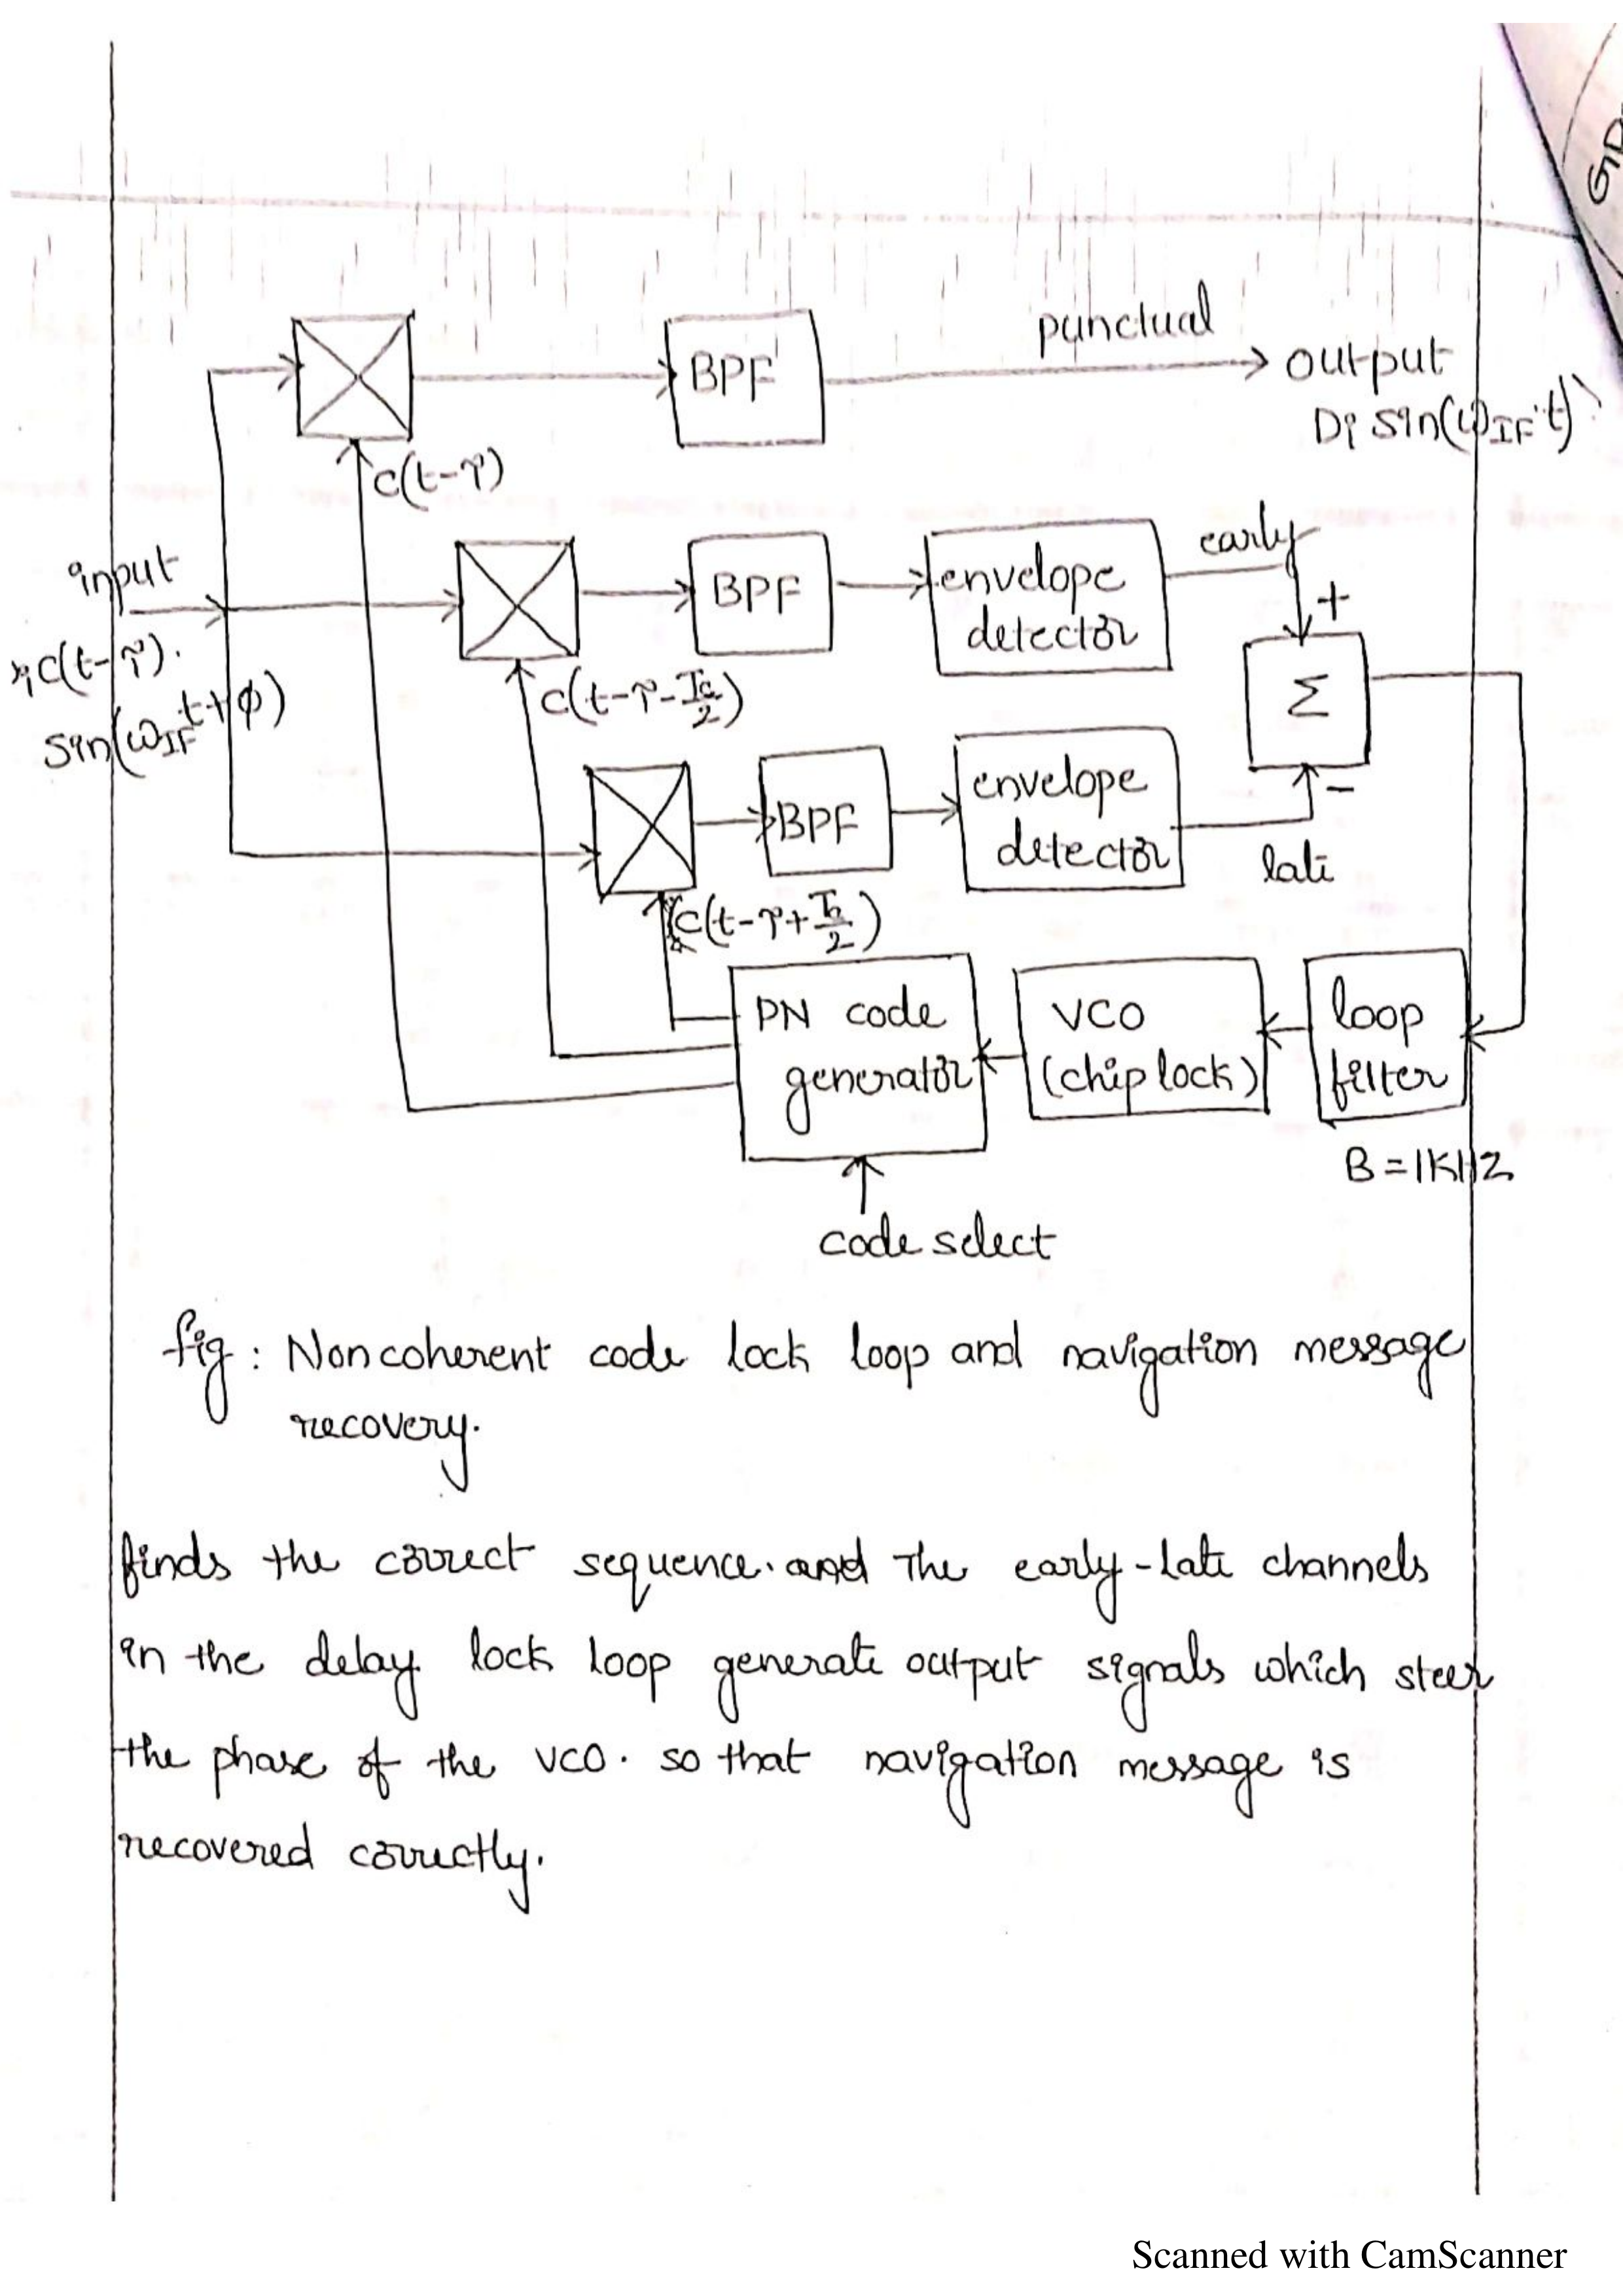 GD
punctual
BPF
output
Di sin(ωIF t)
c(t-τ)
input
early
BPF
envelope
detector
+
c(t-τ).
sin(ωIF t+φ)
c(t-τ-Tc/2)
Σ
envelope
detector
BPF
-
late
c(t-τ+Tc/2)
PN code
generator
VCO
(chip lock)
loop
filter
B = 1KHz
code select
fig : Noncoherent code lock loop and navigation message
recovery.
finds the correct sequence. and The early-late channels
in the delay lock loop generate output signals which steer
the phase of the VCO. so that navigation message is
recovered correctly.
Scanned with CamScanner